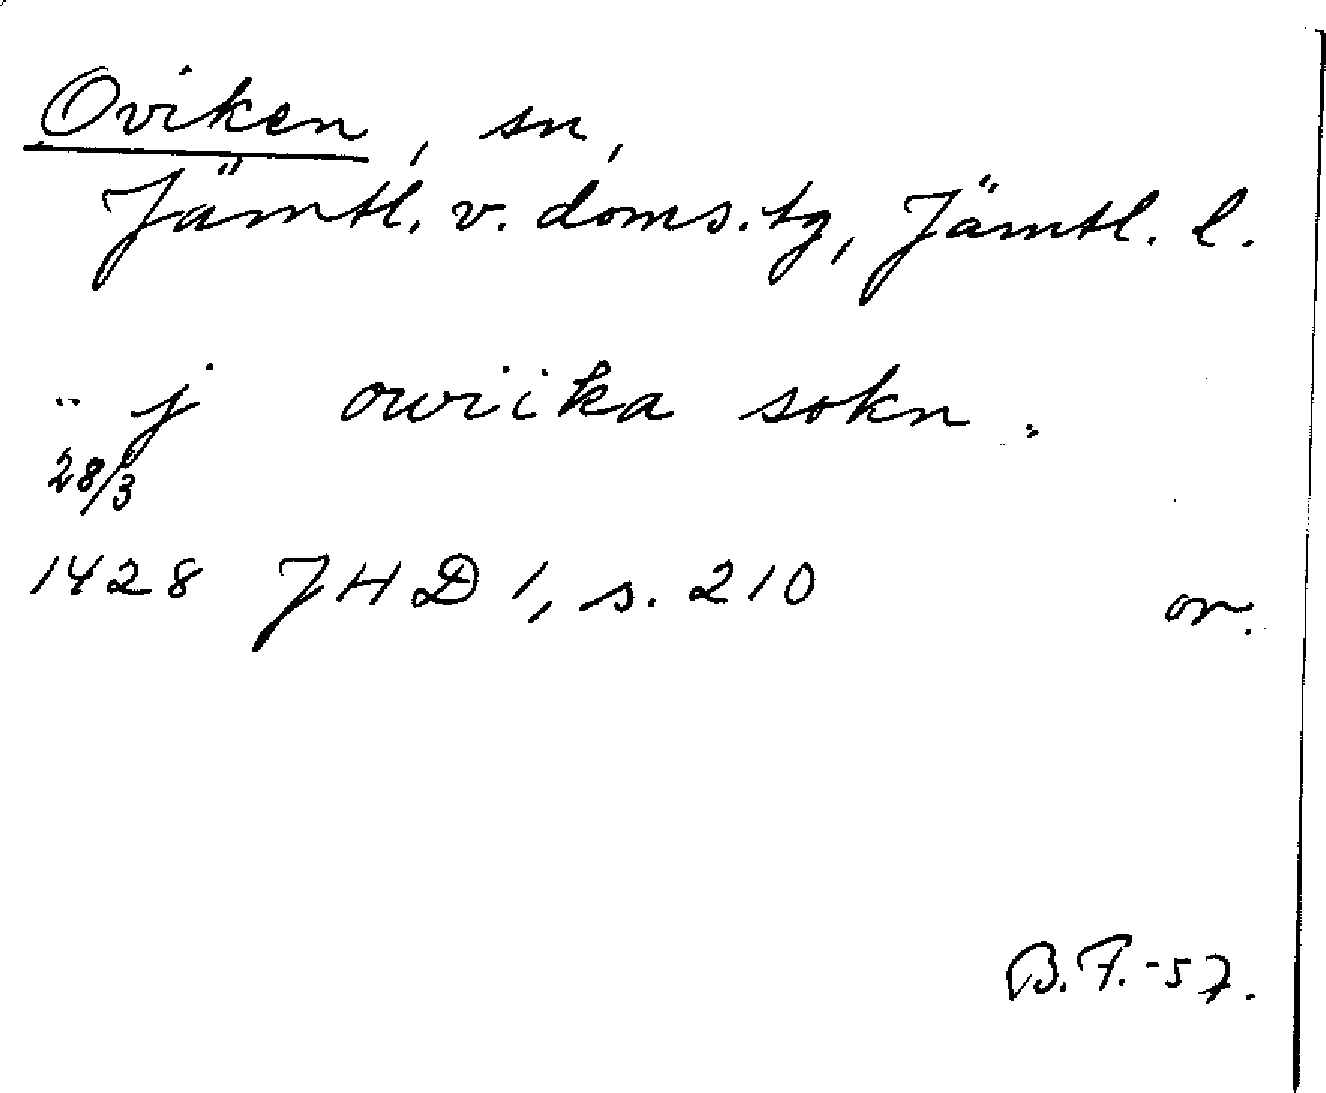 Oviken, sn,
Jämtl. v. doms.tg, Jämtl. l.
.. j owiika sokn ..
28/3
1428 JHD 1, s. 210 or.
B.F.-57.